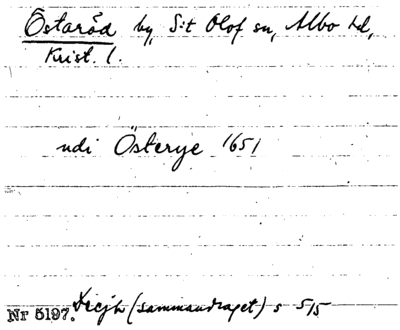 Östaröd by, S:t Olof sn, Albo hd,
Krist. l.
udi Österye 1651
Nr 5197. Decjb (sammandraget) s 515